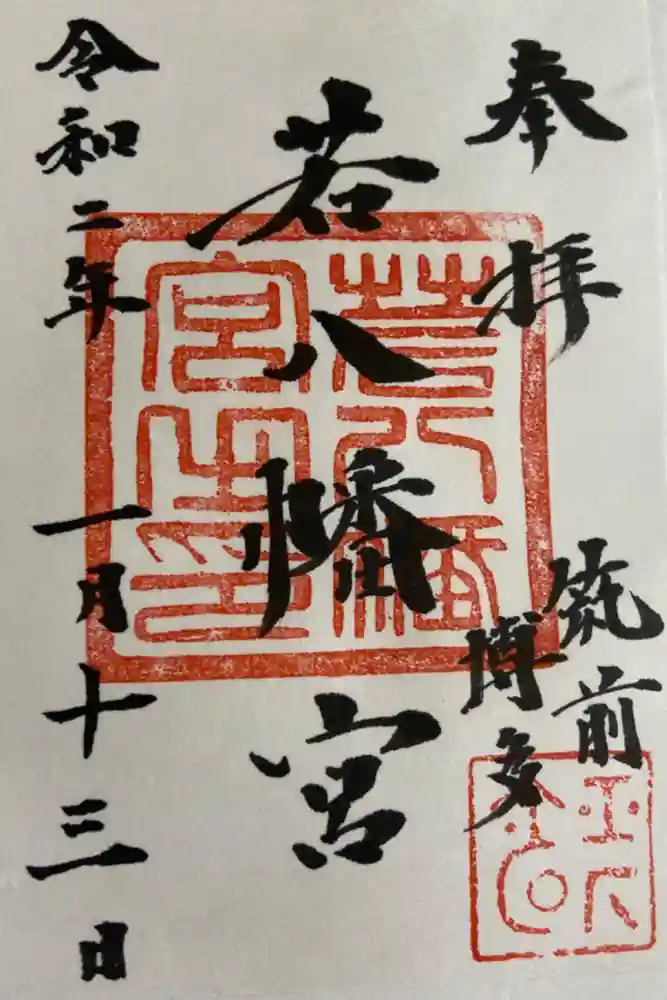 奉拝
筑前
博多
若八幡宮
令和二年一月十三日
若八幡
宮之印